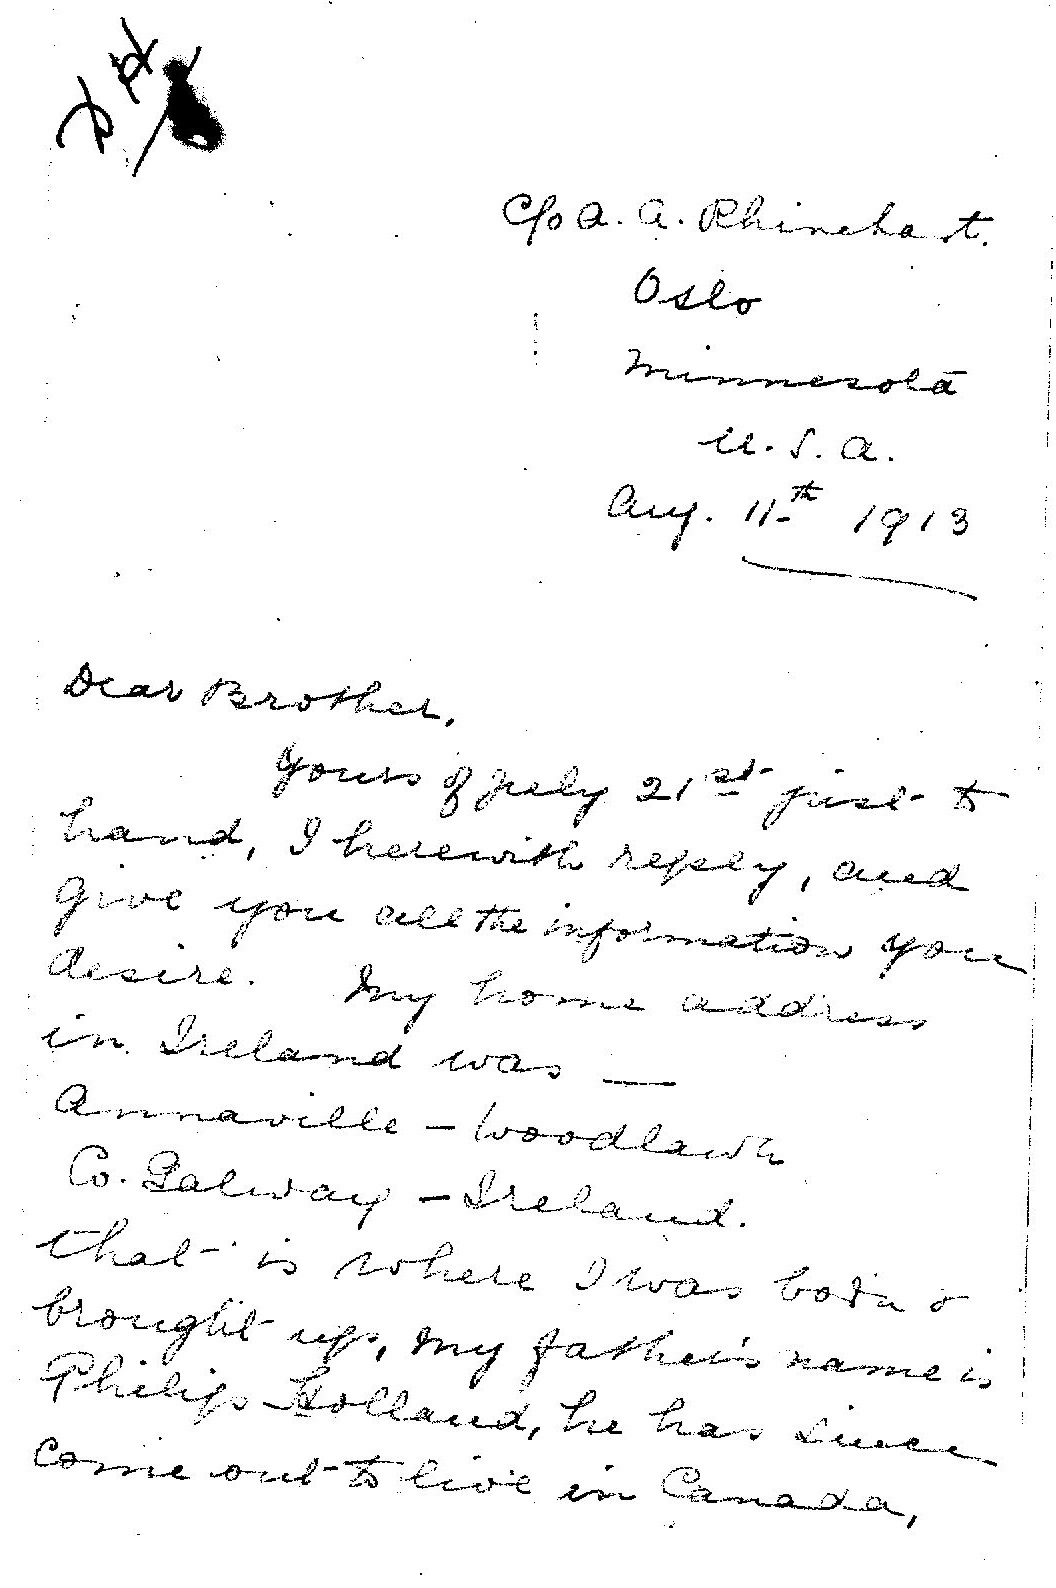 c/o A. A. Rhinehart.
Oslo
Minnesota
U. S. A.
Aug. 11th 1913
Dear Brother,
Yours of July 21st just to
hand, I herewith reply, and
give you all the information you
desire. My home address
in Ireland was —
Annaville – Woodlawn
Co. Galway – Ireland.
that is where I was born &
brought up, my father's name is
Philip Holland, he has since
come out to live in Canada,